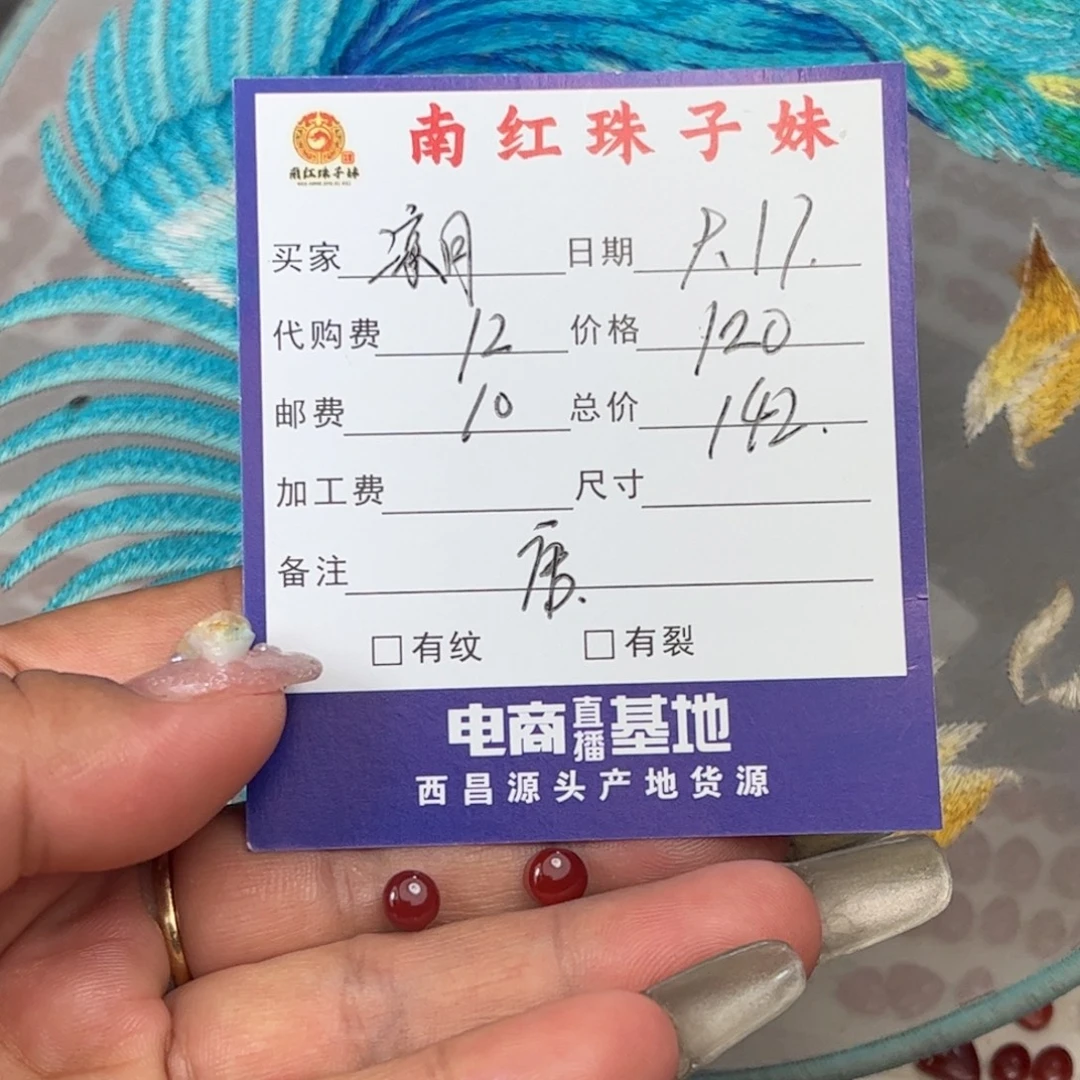 南红珠子妹
南红珠子妹
买家 凉月 日期 6.17.
代购费 12 价格 120
邮费 10 总价 142.
加工费 尺寸
备注
□有纹 □有裂
电商直播基地
西昌源头产地货源